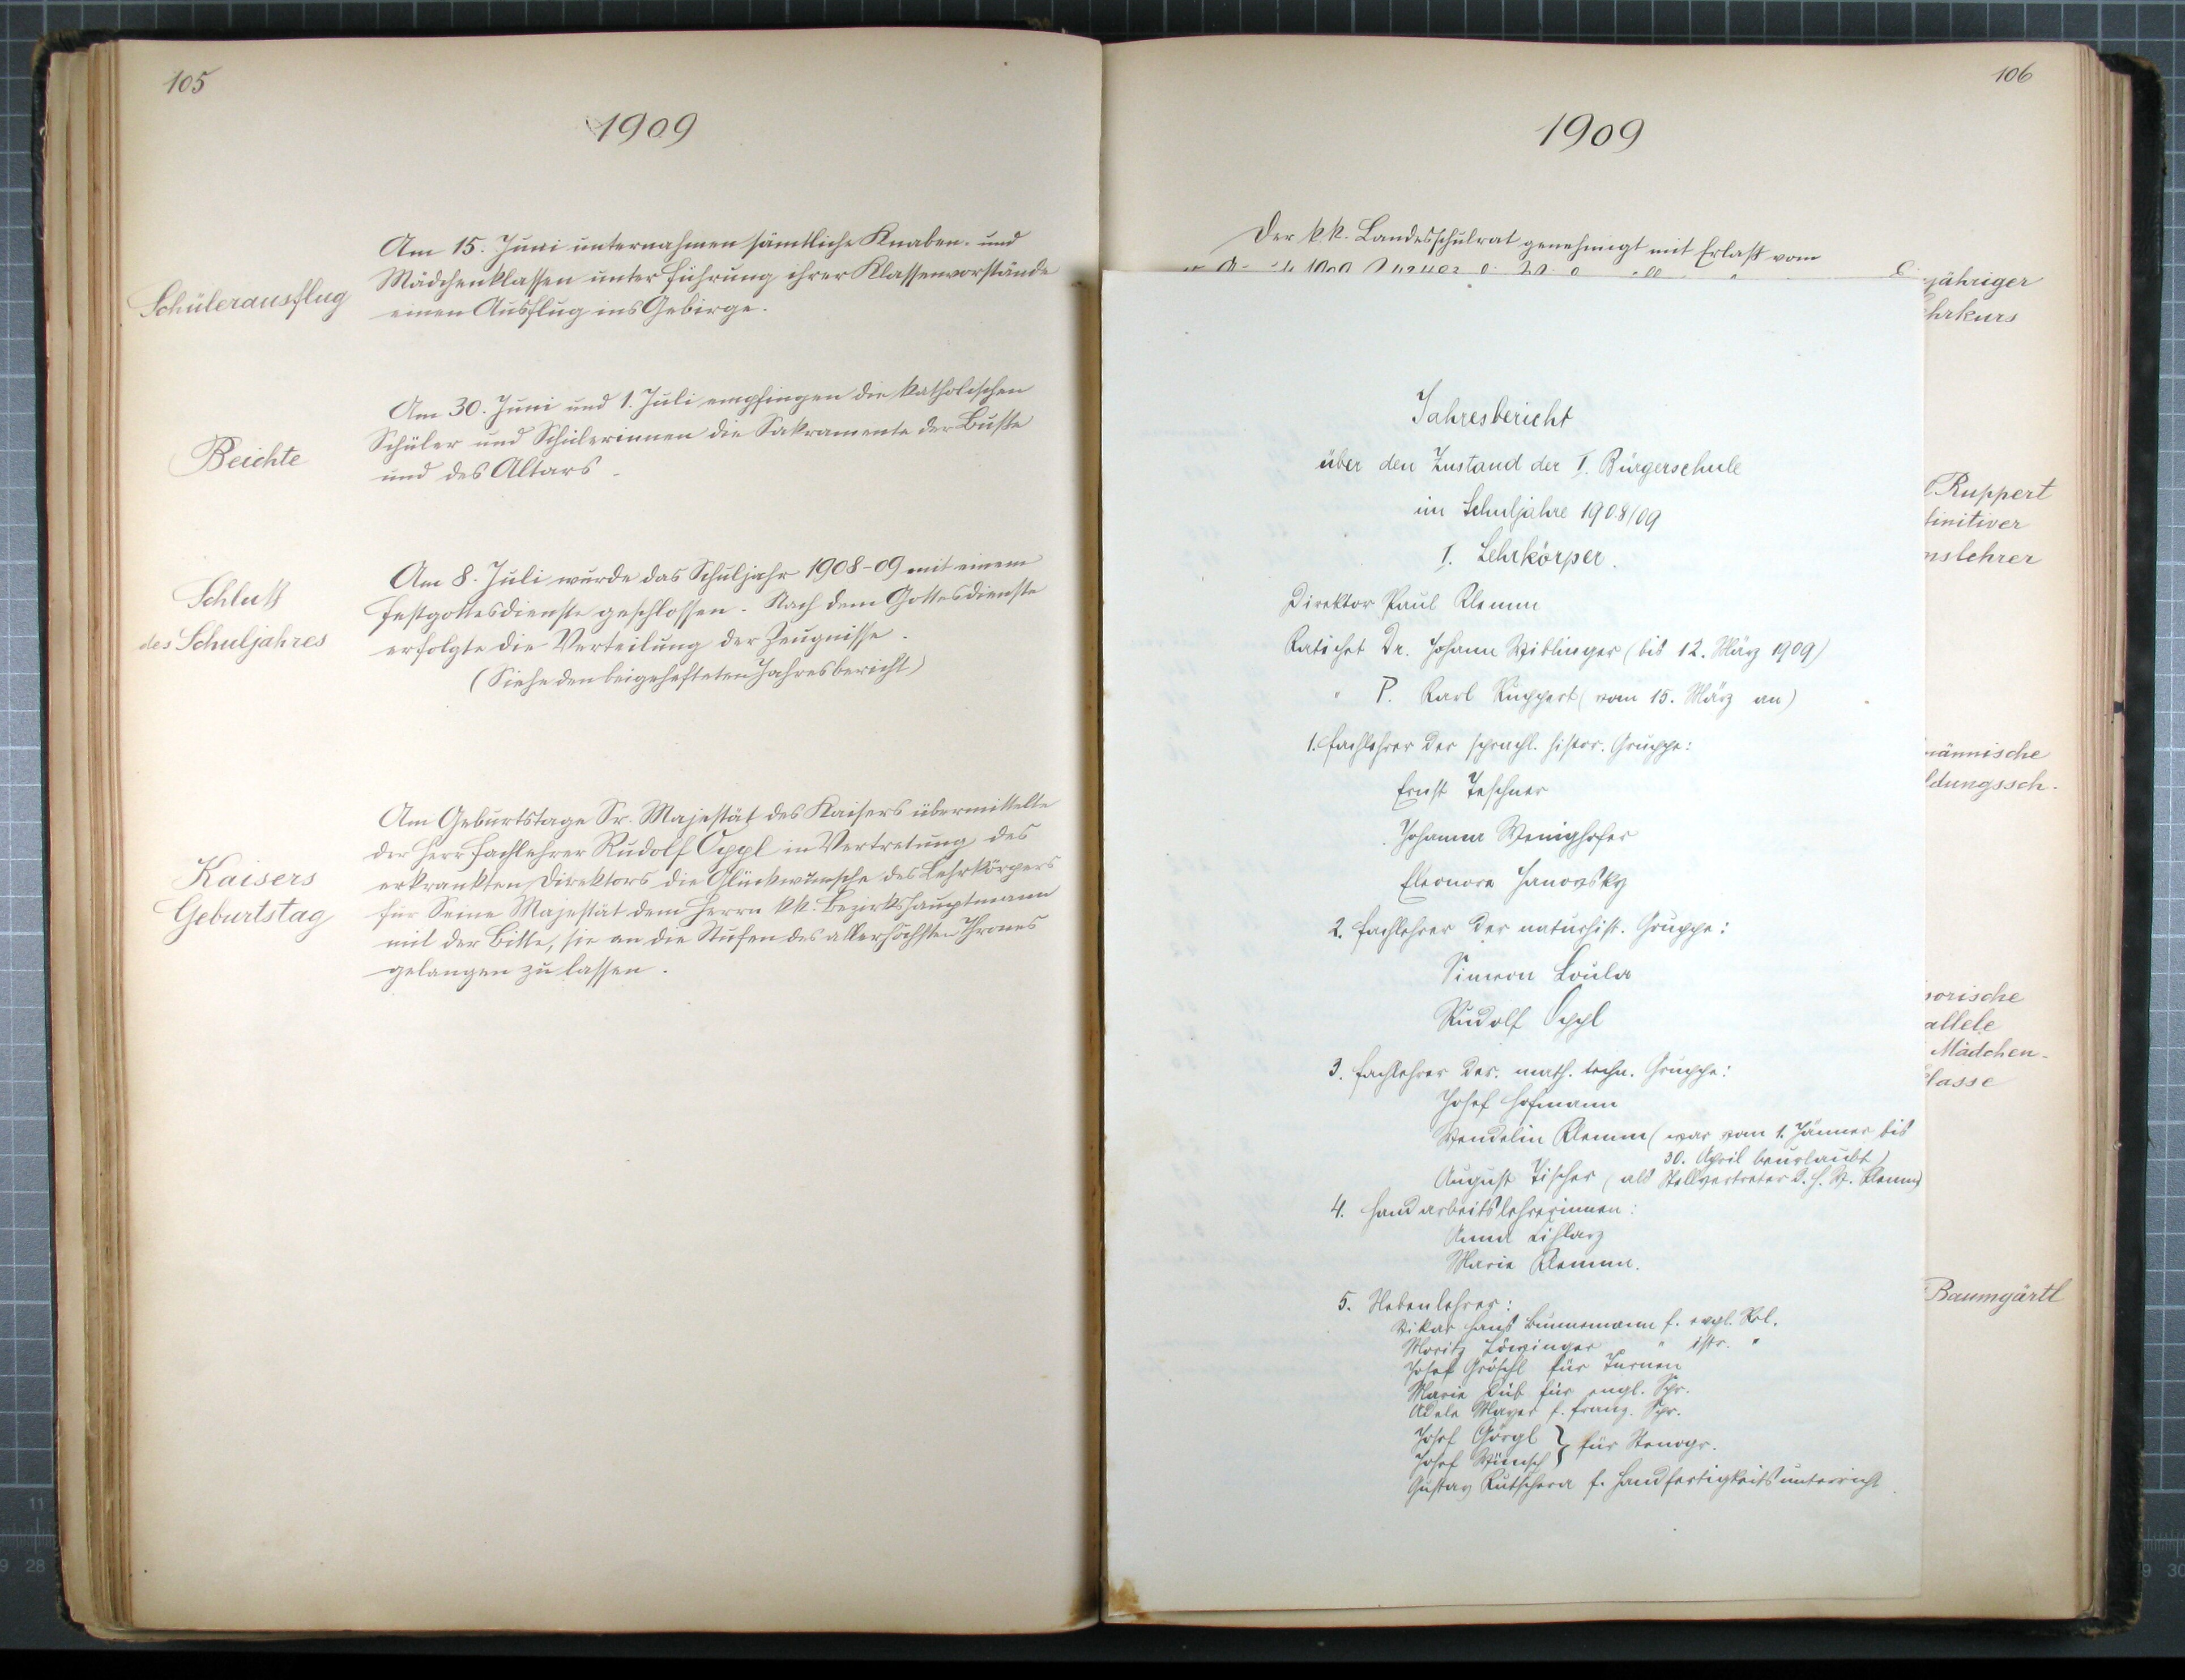 105
1909
Schülerausflug
Am 15. Juni unternahmen sämtliche Knaben- und
Mädchenklassen unter Führung ihrer Klassenvorstände
einen Ausflug ins Gebirge.
Beichte
Am 30. Juni und 1. Juli empfingen die katholischen
Schüler und Schülerinnen die Sakramente der Buße
und des Altars.
Schluß
des Schuljahres
Am 8. Juli wurde das Schuljahr 1908-09 mit einem
Festgottesdienste geschlossen. Nach dem Gottesdienste
erfolgte die Verteilung der Zeugnisse.
(Siehe den beigehefteten Jahresbericht)
Kaisers
Geburtstag
Am Geburtstage Sr. Majestät des Kaisers übermittelte
der Herr Fachlehrer Rudolf Oppl in Vertretung des
erkrankten Direktors die Glückwünsche des Lehrkörpers
für Seine Majestät dem Herrn kk. Bezirkshauptmann
mit der Bitte, sie an die Stufen des allerhöchsten Thrones
gelangen zu lassen.
106
1909
Der k.k. Landesschulrat genehmigt mit Erlaß vom
jähriger
hrkurs
Ruppert
finitiver
nslehrer
männische
ldungssch.
sorische
allele
Mädchen-
klasse
Baumgärtl
Jahresbericht
über den Zustand der I. Bürgerschule
im Schuljahre 1908/09
I. Lehrkörper.
Direktor Paul Klemm
Katechet Dr. Johann Wiblinger (bis 12. März 1909)
" P. Karl Ruppert (vom 15. März an)
1. Fachlehrer der sprachl. histor. Gruppe:
Ernst Teschner
Johanna Wenighofer
Eleonore Janovsky
2. Fachlehrer der naturhist. Gruppe:
Simeon Loula
Rudolf Oppl
3. Fachlehrer der math. techn. Gruppe:
Josef Hofmann
Wendelin Klemm (war vom 1. Jänner bis
30. April beurlaubt)
August Tischer (als Stellvertreter d. H. W. Klemm)
4. Handarbeitslehrerinnen:
Anna
Marie Klemm.
5. Nebenlehrer:
Vikar Hans Bünnemann f. evgl. Rel.
Moritz Löwinger " isr. "
Josef Gröschl für Turnen
Marie Düb für engl. Spr.
Adele Mayer f. franz. Spr.
Josef Görgl } für Stenogr.
Josef Wünsch
Gustav Kutschera f. Handfertigkeitsunterricht.
11
9 28
9 30